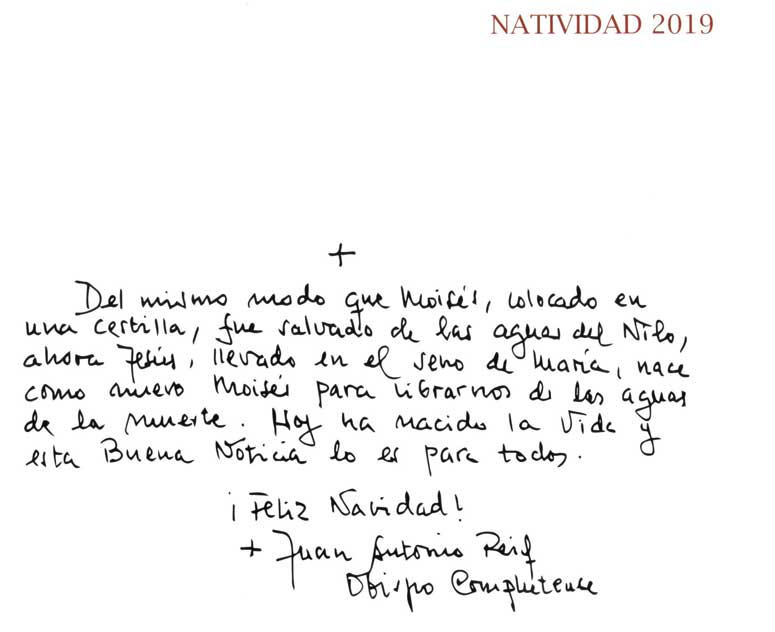 NATIVIDAD 2019
+
Del mismo modo que Moisés, colocado en
una cestilla, fue salvado de las aguas del Nilo,
ahora Jesús, llevado en el seno de María, nace
como nuevo Moisés para librarnos de las aguas
de la muerte. Hoy ha nacido la Vida y
esta Buena Noticia lo es para todos.
¡Feliz Navidad!
+ Juan Antonio Reig
Obispo Complutense